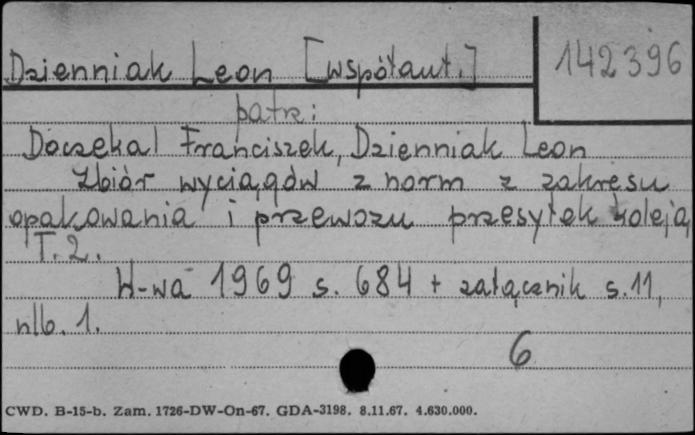 Dzienniak Leon [współaut.]
142396
patrz:
Doczekal Franciszek, Dzienniak Leon
Zbiór wyciągów z norm z zakresu
opakowania i przewozu przesyłek koleją
T. 2.
W-wa 1969 s. 684 + załącznik s. 11,
nlb. 1.
6
CWD. B-15-b. Zam. 1726-DW-On-67. GDA-3198. 8.11.67. 4.630.000.